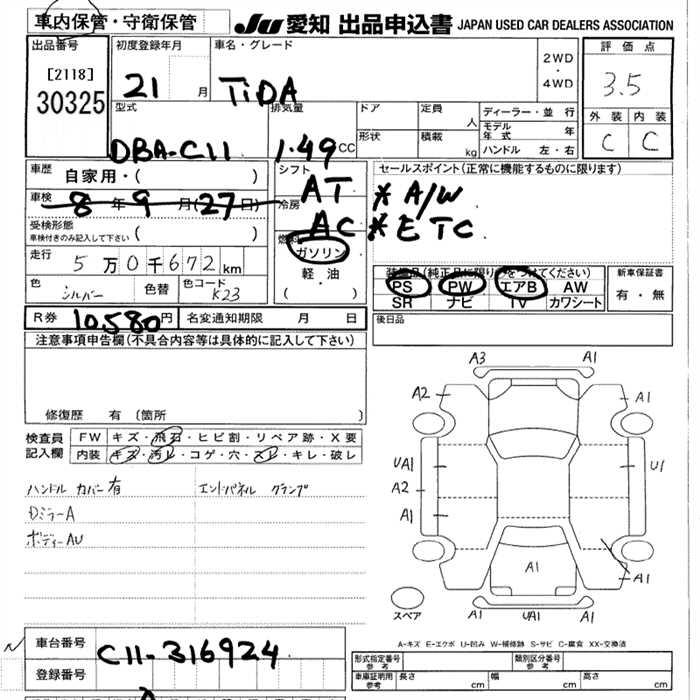 車内保管・守衛保管
JU 愛知 出品申込書 JAPAN USED CAR DEALERS ASSOCIATION
出品番号 初度登録年月 車名・グレード 2WD ・ 4WD 評価点
[2118]
30325
21 月 TiDA 3.5
型式 排気量 ドア 定員 人 ディーラー・並行 外装 内装
DBA-C11 1.49 CC 形状 積載 kg モデル年式 年 C C
ハンドル 左・右
車歴 自家用・( ) シフト AT セールスポイント(正常に機能するものに限ります)
車検 8年9月(27日) 冷房 AC * A/W
受検形態 * ETC
車検付きのみ記入して下さい ( )
燃料 ガソリン
走行 5万0千672km 軽・油
( )
装備品(純正品に限り○をつけてください) 新車保証書
色 シルバー 色替 色コード K23 PS PW エアB AW 有・無
SR ナビ TV カワシート
R券 10,580円 名変通知期限 月 日 後日品
注意事項申告欄(不具合内容等は具体的に記入して下さい)
修復歴 有 (箇所 )
検査員記入欄 FW キズ・飛石・ヒビ割・リペア跡・X要
内装 キズ・汚レ・コゲ・穴・スレ・キレ・破レ
ハンドル カバー有 エンドパネル クランプ
DミラーA
ボディーAU
A3 A1
A2 A1
UA1 U1
A2
A1
A1 A1
スペア A1 UA1 A1
A-キズ E-エクボ U-凹み W-補修跡 S-サビ C-腐食 XX-交換済
車台番号 C11-316924
登録番号
形式指定番号 参考 類別区分番号 参考
車庫証明用 参考 長さ cm 幅 cm 高さ cm